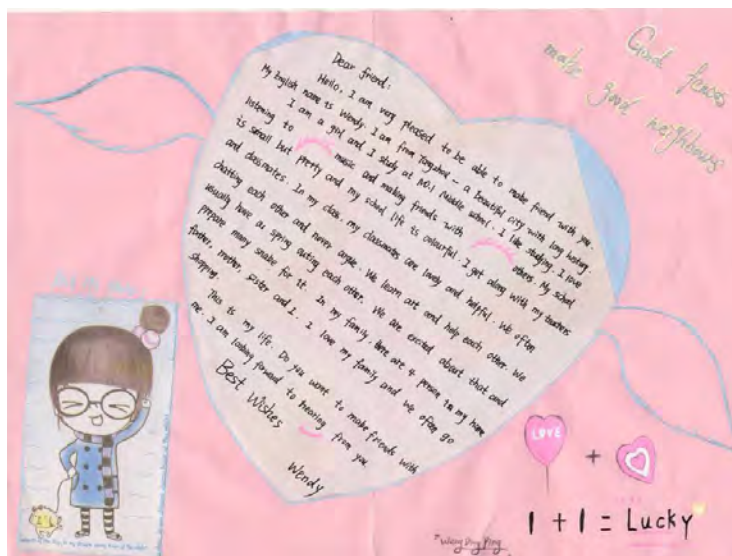 Good fences
make good neighbours
Dear friend:
Hello. I am very pleased to be able to make friend with you.
My English name is Wendy. I am from Tongzhou - a beautiful city with long history.
I am a girl and I study at NO.1 Middle school. I like studying. I love
listening to music and making friends with others. My school
is small but pretty and my school life is colourful. I get along with my teachers
and classmates. In my class, my classmates are lovely and helpful. We often
chatting each other and never angle. We learn are and help each other. We
usually have au spring outing each other. We are excited about that and
prepare many snake for it. In my family, there are 4 person in my home
father, mother, sister and I.. I love my family and we often go
shopping.
This is my life. Do you want to make friends with
me. I am looking forward to hearing from you.
Best Wishes
Wendy
LOVE
+
1 + 1 = Lucky
Wang Ding Ping